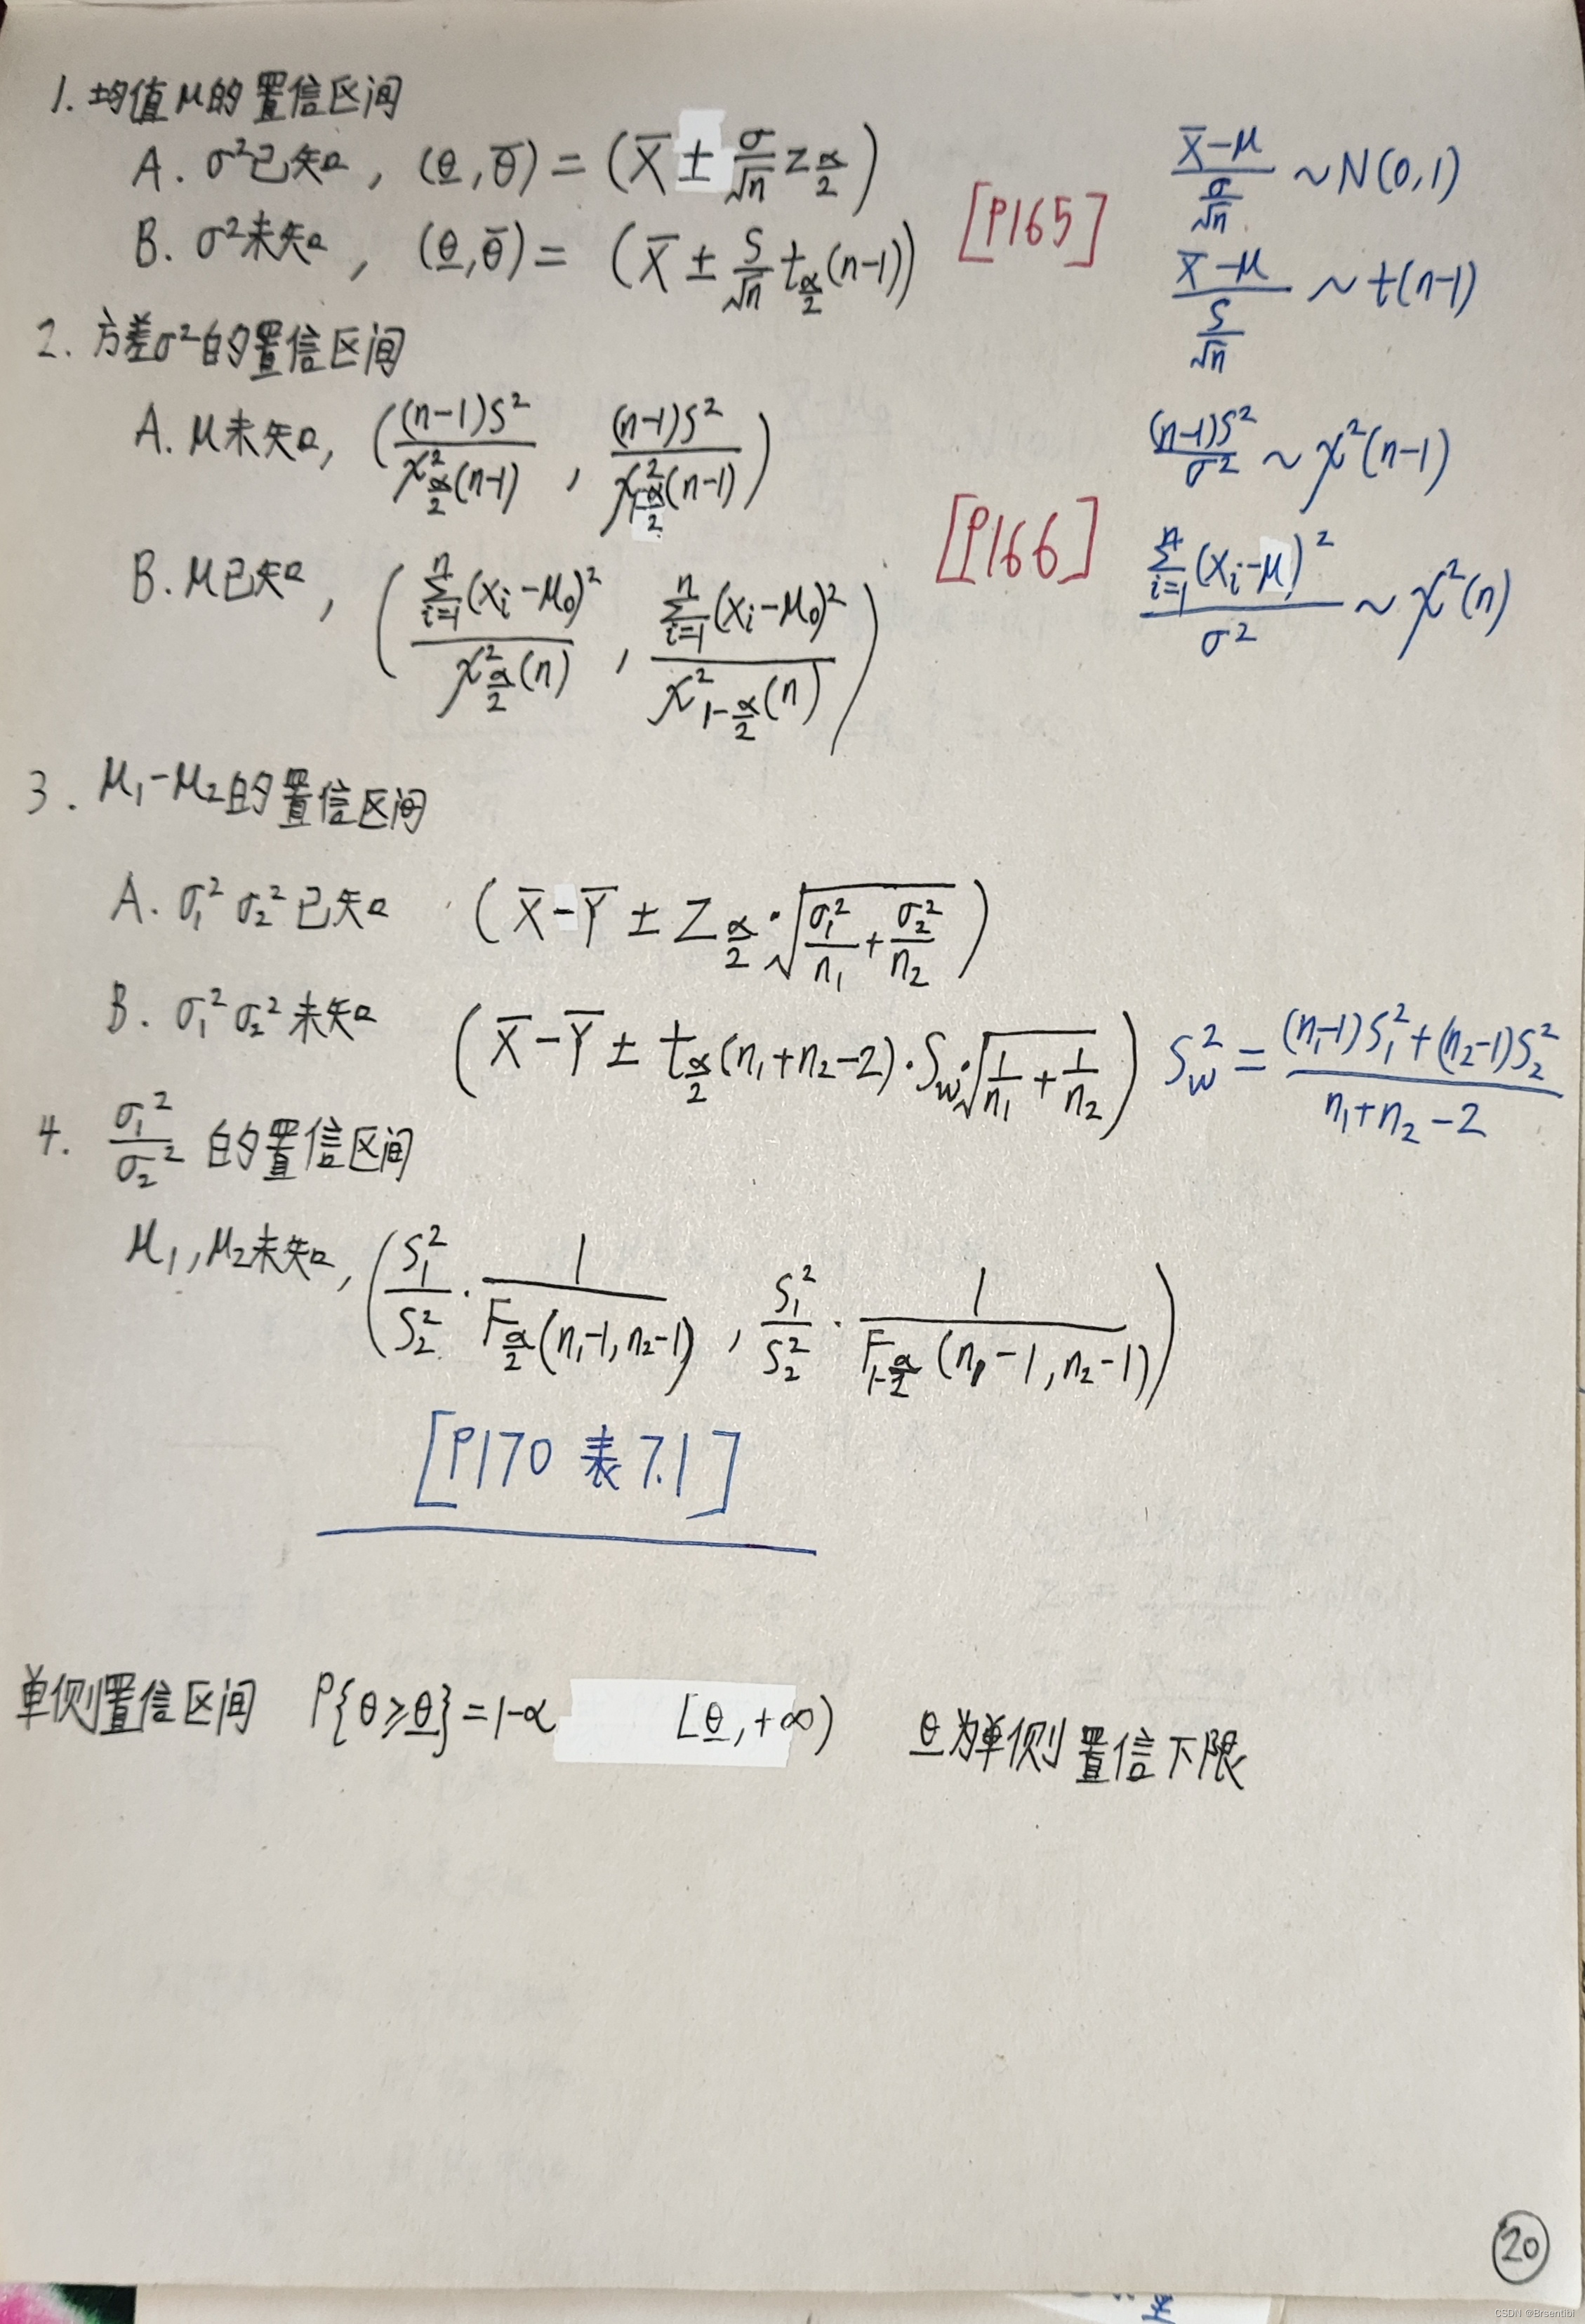 1. 均值μ的置信区间
A. σ²已知, (θ̲, θ̅) = (X̅ ± σ/√n z_{α/2})
X̅-μ / (σ/√n) ~ N(0,1)
B. σ²未知, (θ̲, θ̅) = (X̅ ± S/√n t_{α/2}(n-1))
[P165]
X̅-μ / (S/√n) ~ t(n-1)
2. 方差σ²的置信区间
A. μ未知, ((n-1)S² / χ²_{α/2}(n-1), (n-1)S² / χ²_{1-α/2}(n-1))
(n-1)S² / σ² ~ χ²(n-1)
[P166]
B. μ已知, (∑_{i=1}^{n}(X_i-μ_0)² / χ²_{α/2}(n), ∑_{i=1}^{n}(X_i-μ_0)² / χ²_{1-α/2}(n))
∑_{i=1}^{n}(X_i-μ)² / σ² ~ χ²(n)
3. μ₁-μ₂的置信区间
A. σ₁² σ₂² 已知 (X̅-Y̅ ± Z_{α/2}·√(σ₁²/n₁ + σ₂²/n₂))
B. σ₁² σ₂² 未知 (X̅-Y̅ ± t_{α/2}(n₁+n₂-2)·S_w·√(1/n₁ + 1/n₂)) S_w² = ((n₁-1)S₁²+(n₂-1)S₂²) / (n₁+n₂-2)
4. σ₁²/σ₂² 的置信区间
μ₁,μ₂未知, (S₁²/S₂² · 1/F_{α/2}(n₁-1,n₂-1), S₁²/S₂² · 1/F_{1-α/2}(n₁-1,n₂-1))
[P170 表7.1]
单侧置信区间 P{θ≥θ̲}=1-α [θ̲,+∞) θ̲为单侧置信下限
20
CSDN @Brsentibi